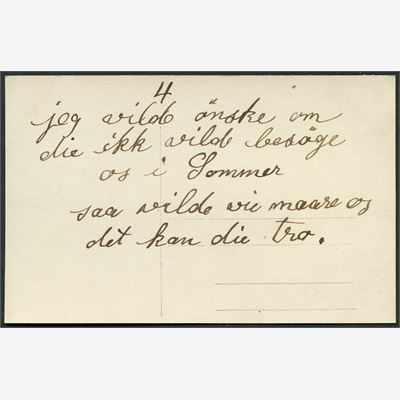 4
jeg vild ønske om
die ikk vild besøge
os i Sommer
saa vilde vie maare os
det kan die tro.